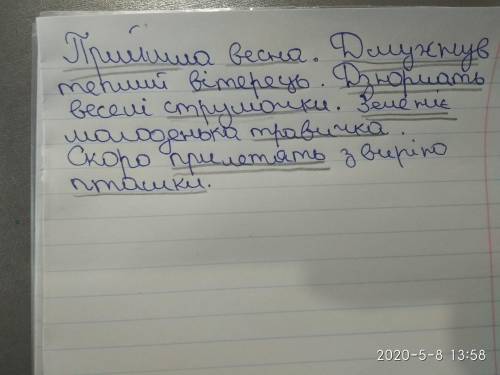 Прийшла весна. Дмухнув
теплий вітерець. Дзюрчать
веселі струмочки. Зеленіє
молоденька травичка.
Скоро прилетять з вирію
пташки.
2020-5-8 13:58